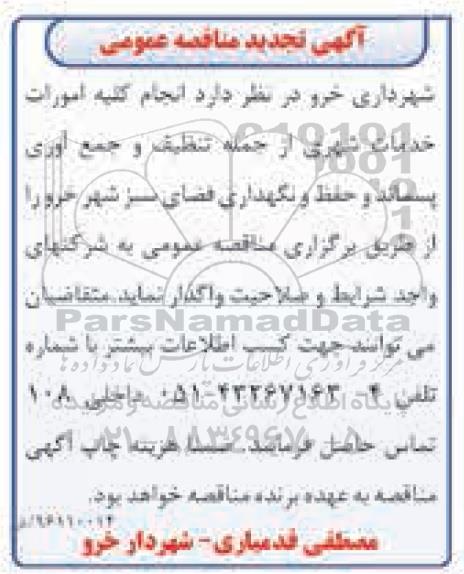 آگهی تجدید مناقصه عمومی
شهرداری خرو در نظر دارد انجام کلیه امورات
خدمات شهری از جمله تنظیف و جمع آوری
پسماند و حفظ و نگهداری فضای سبز شهر خرو را
از طریق برگزاری مناقصه عمومی به شرکتهای
واجد شرایط و صلاحیت واگذار نماید. متقاضیان
می توانند جهت کسب اطلاعات بیشتر با شماره
تلفن ۴- ۴۳۲۶۷۱۶۳-۰۵۱ داخلی ۱۰۸
تماس حاصل فرمایند. ضمنا هزینه چاپ آگهی
مناقصه به عهده برنده مناقصه خواهد بود.
مصطفی قدمیاری- شهردار خرو
ParsNamadData